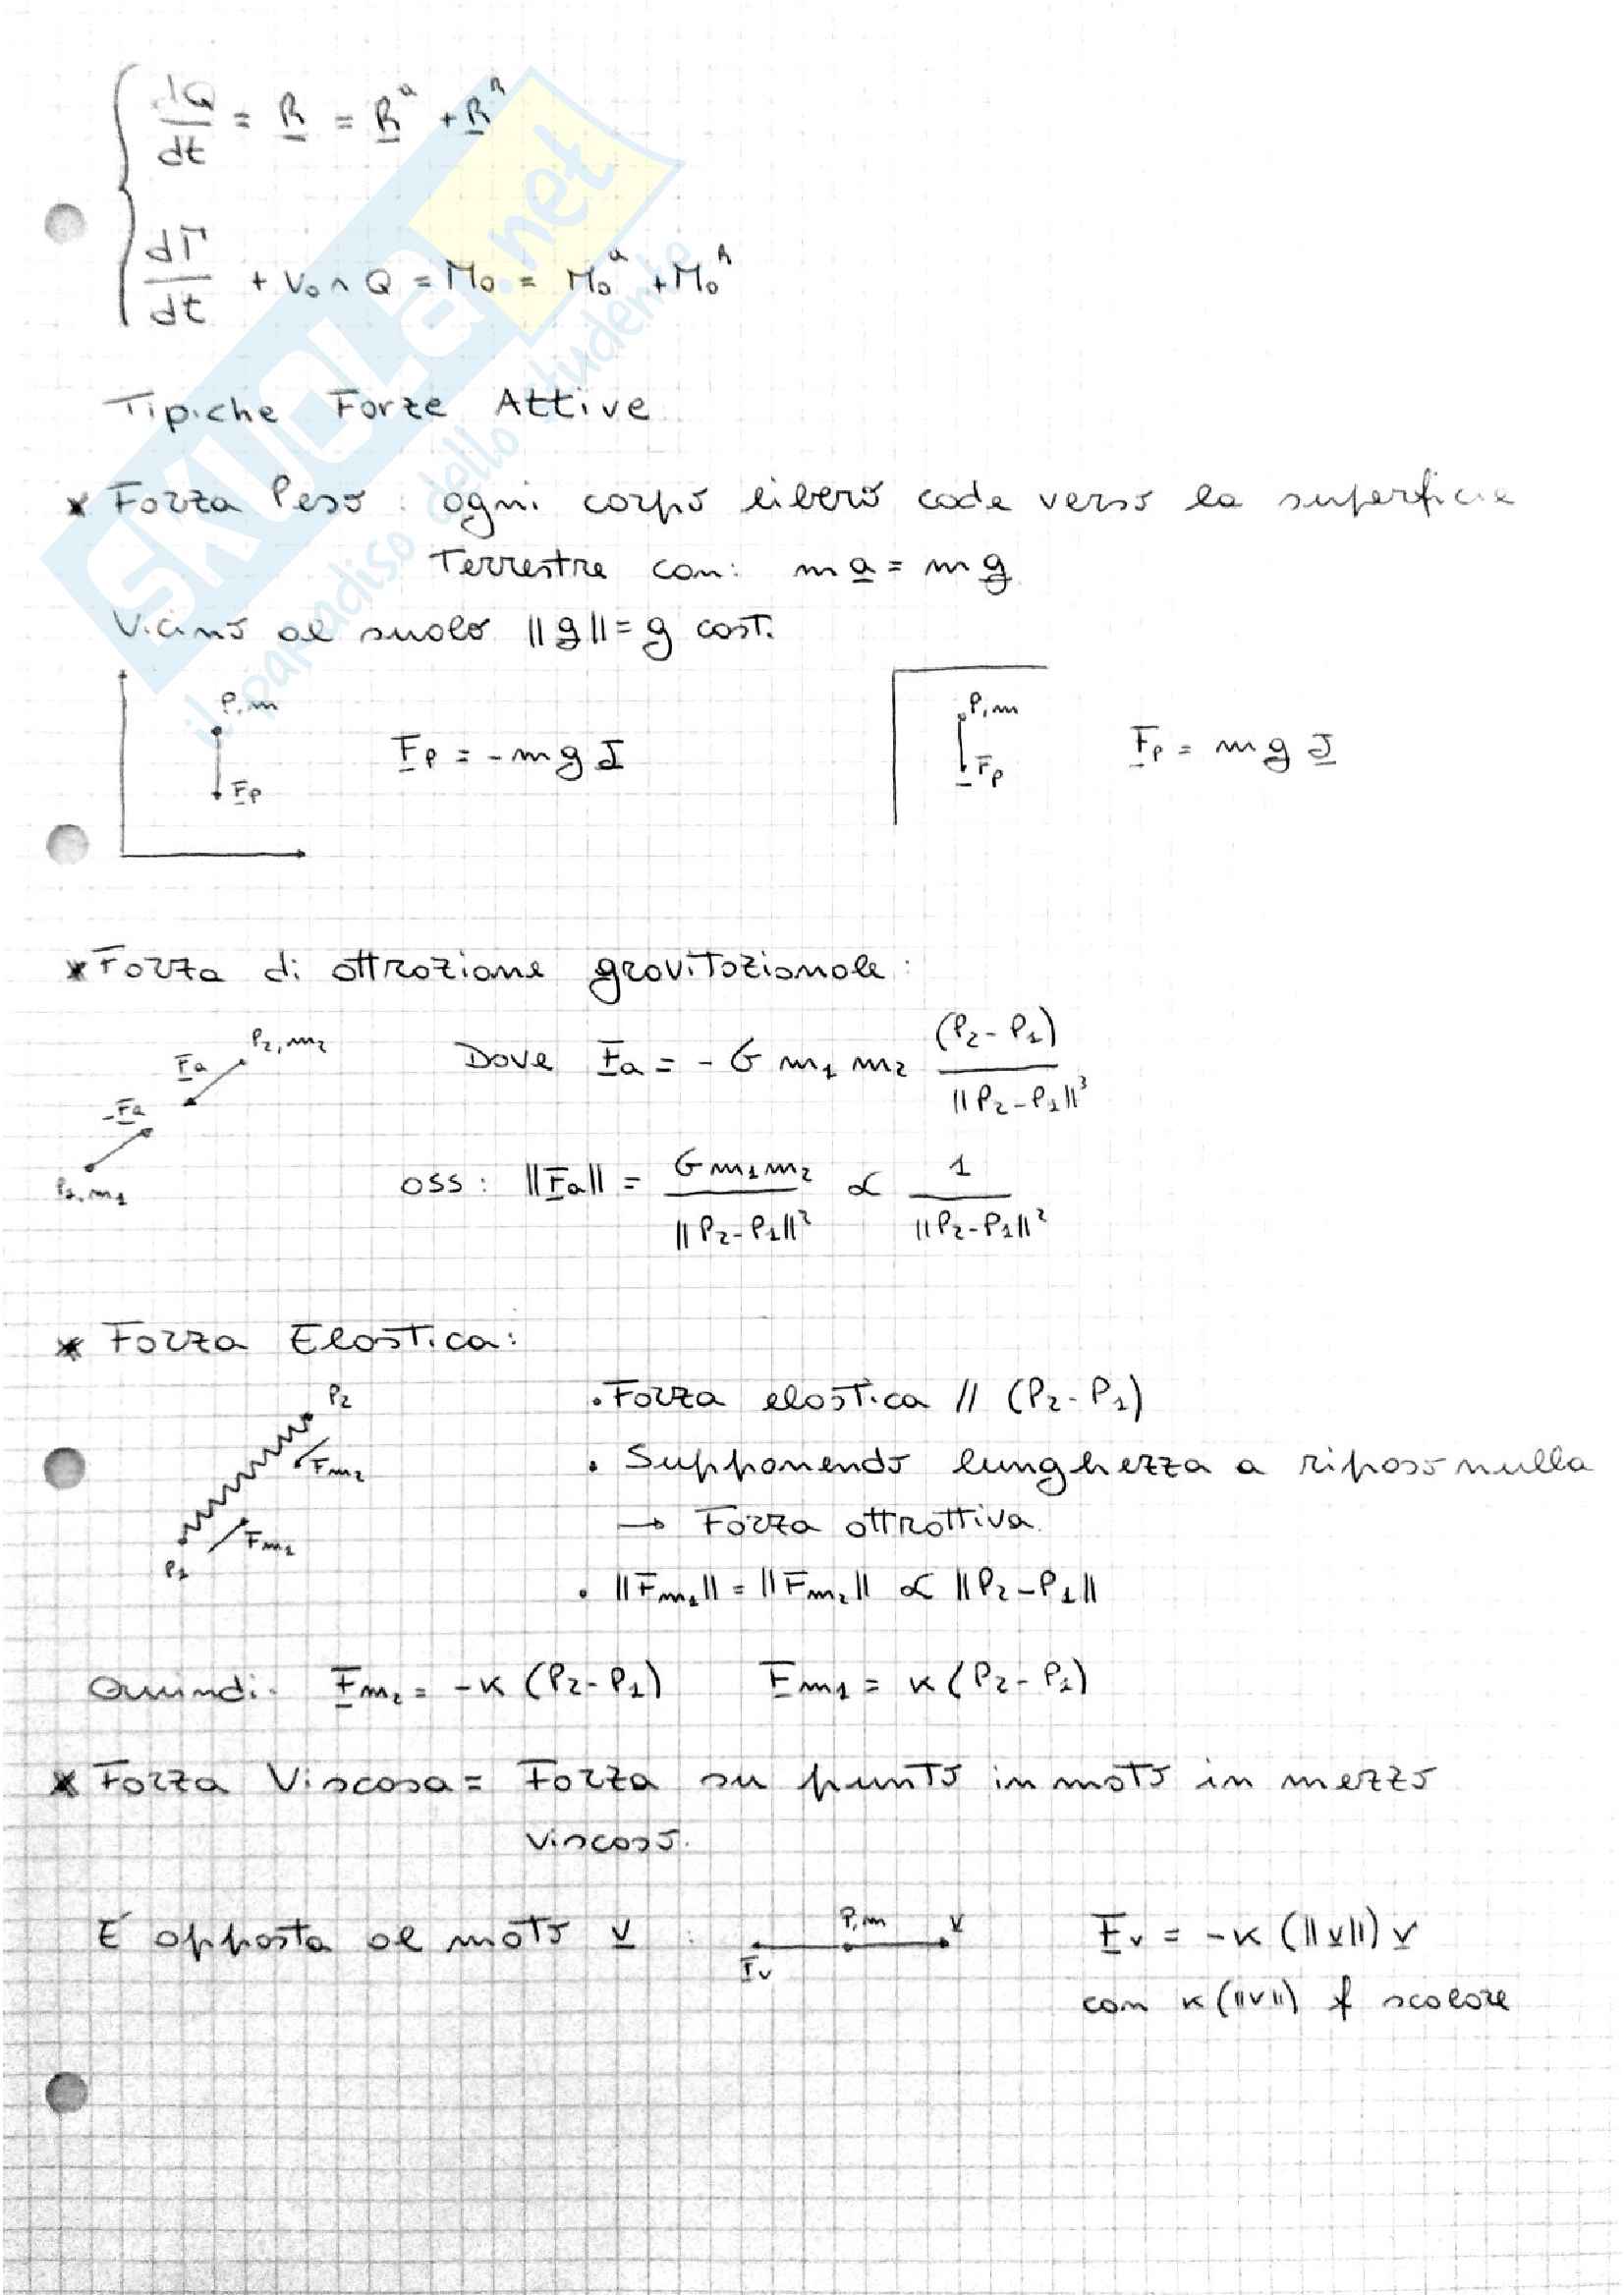 dQ/dt = R = R^a + R^r
dΓ/dt + v₀ ∧ Q = M₀ = M₀^a + M₀^r
Tipiche Forze Attive
* Forza Peso : ogni corpo libero cade verso la superficie
Terrestre con: m a = m g
Vicino al suolo ||g|| = g cost.
P, m
F_p
F_p = - m g J
P, m
F_p
F_p = m g J
* Forza di attrazione gravitazionale :
P₂, m₂
F_a
-F_a
P₁, m₁
Dove F_a = - G m₁ m₂ (P₂ - P₁) / ||P₂ - P₁||³
OSS : ||F_a|| = G m₁ m₂ / ||P₂ - P₁||² ∝ 1 / ||P₂ - P₁||²
* Forza Elastica :
P₂
F_m₂
F_m₁
P₁
• Forza elastica // (P₂ - P₁)
• Supponendo lunghezza a riposo nulla
→ Forza attrattiva.
• ||F_m₁|| = ||F_m₂|| ∝ ||P₂ - P₁||
Quindi: F_m₂ = -K (P₂ - P₁) F_m₁ = K (P₂ - P₁)
* Forza Viscosa = Forza su punto in moto in mezzo
viscoso.
È opposta al moto v :
P, m
v
F_v
F_v = -K (||v||) v
con K (||v||) f scalare
SKUOLA.net
il paradiso dello studente